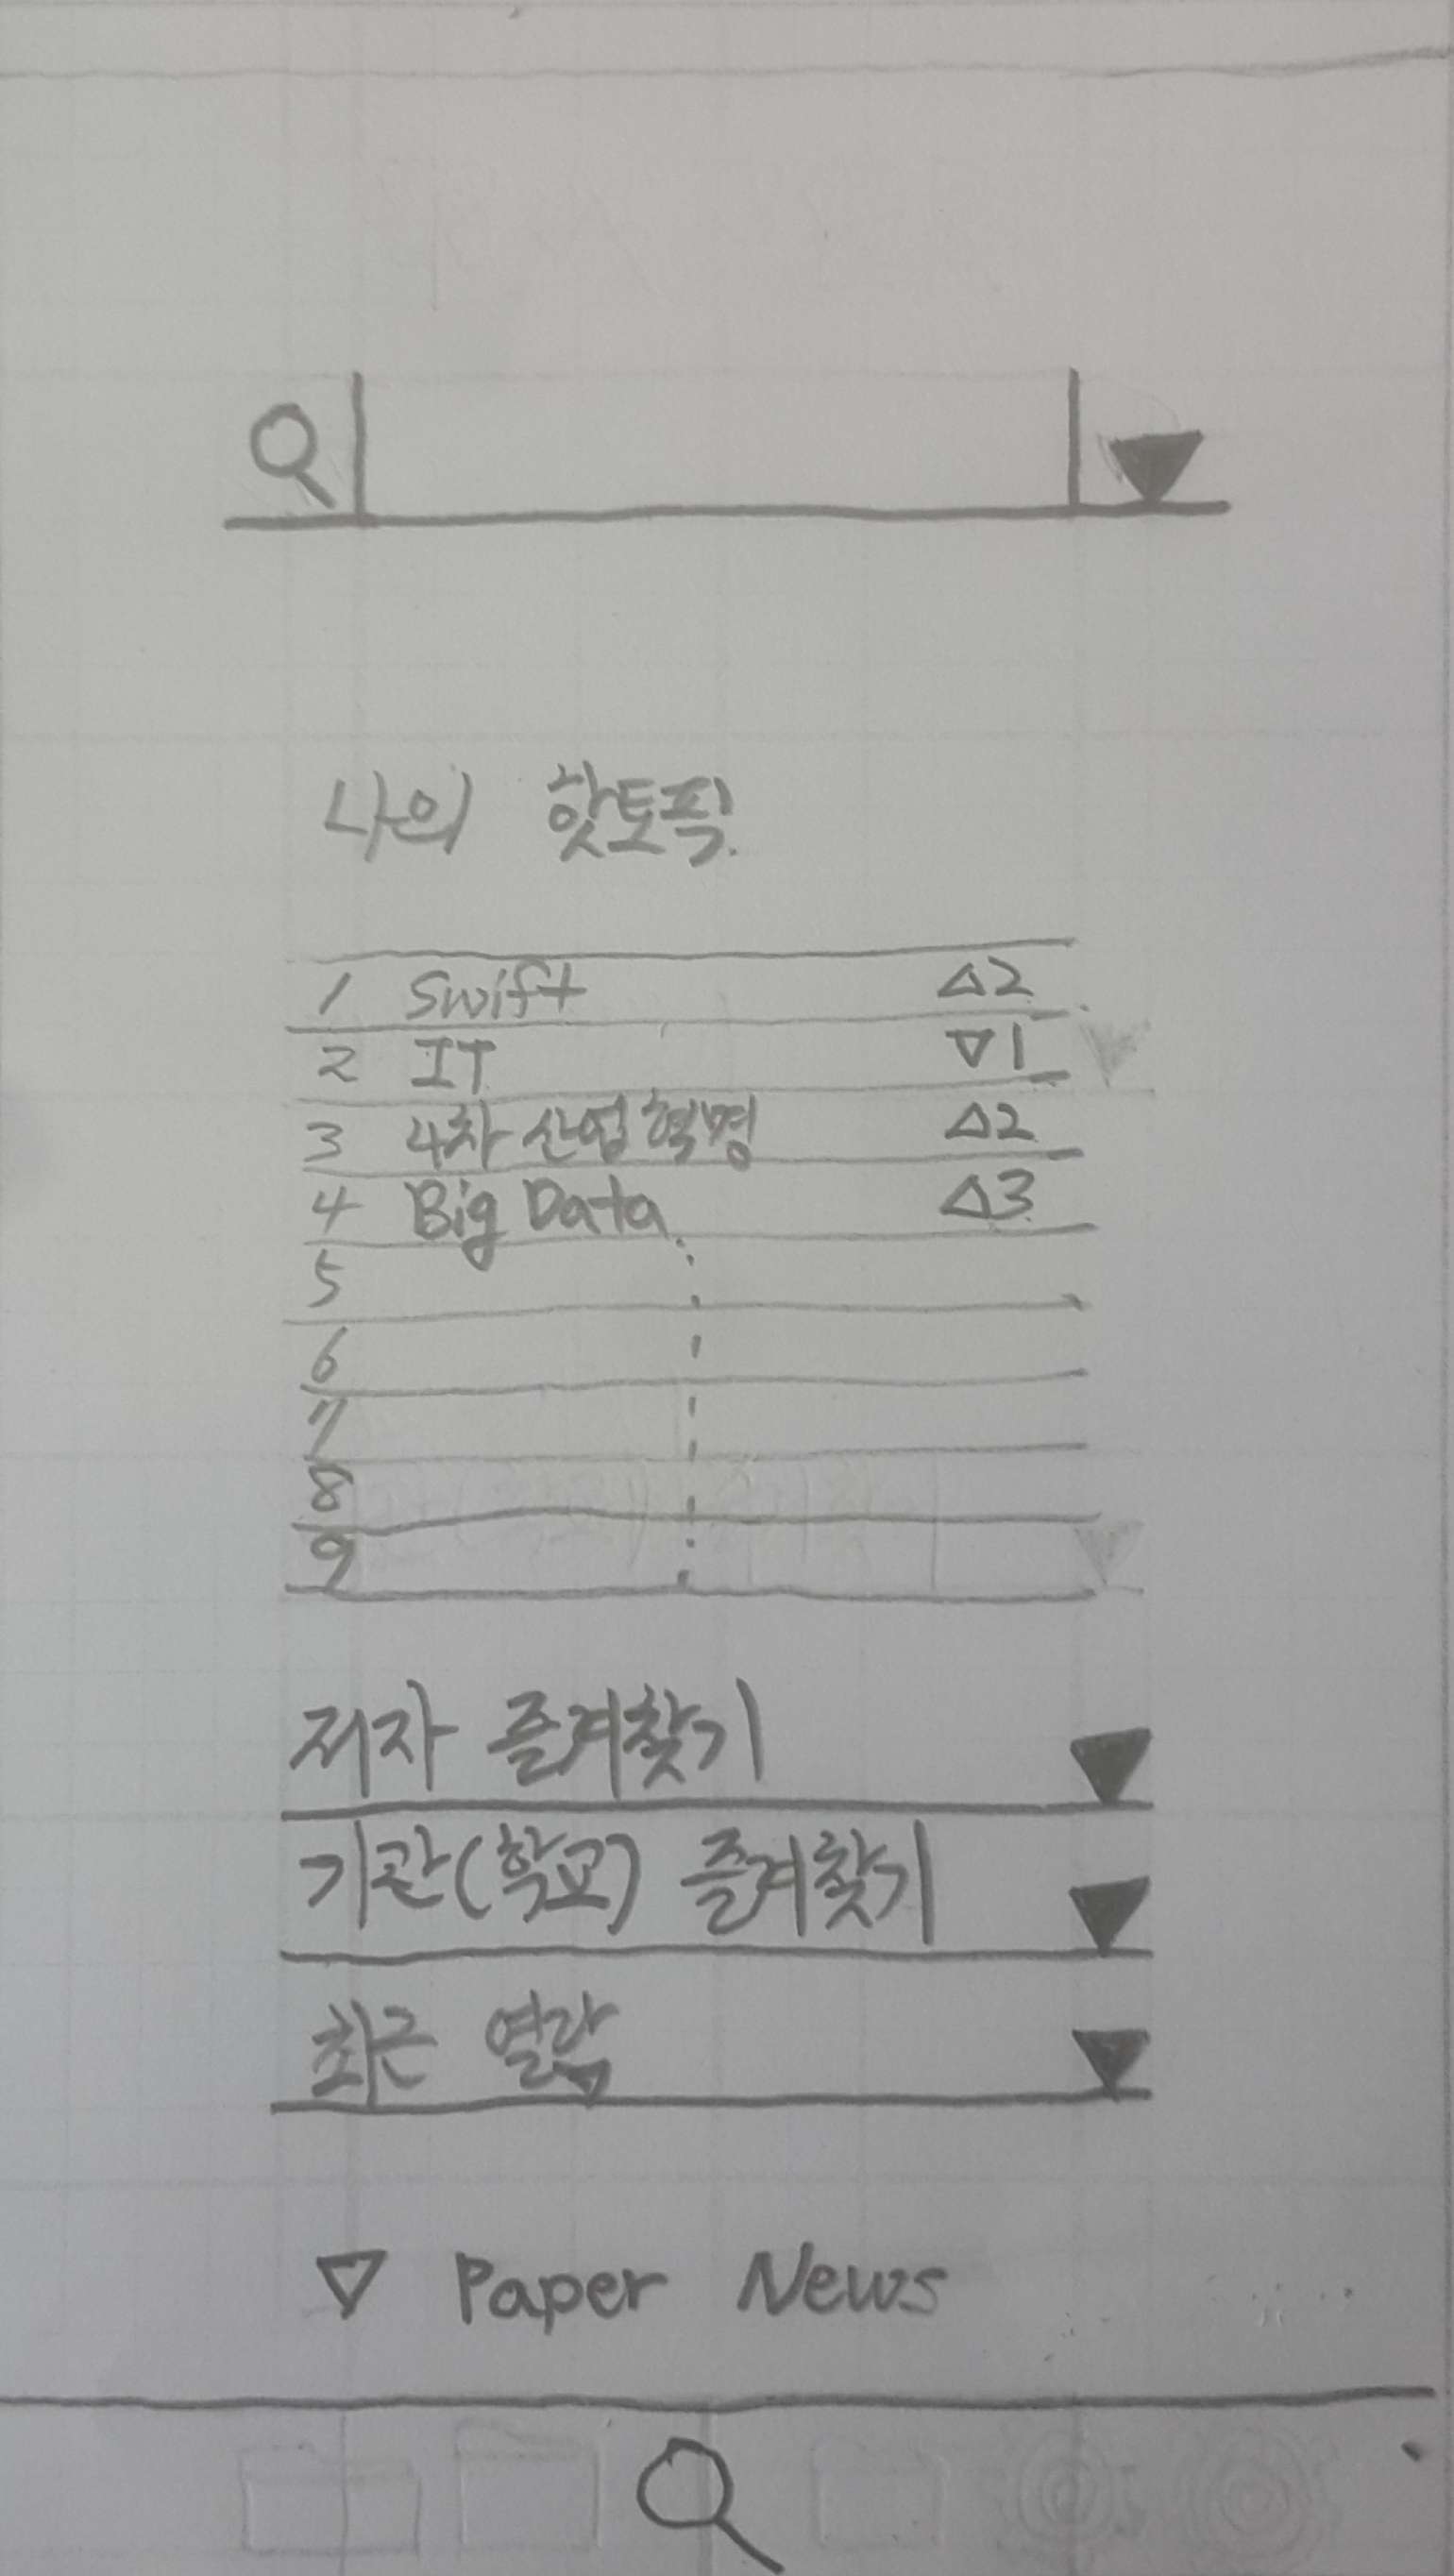 나의 핫토픽
1 Swift △2
2 IT ▽1
3 4차 산업혁명 △2
4 Big Data △3
5
6
7
8
9
저자 즐겨찾기 ▼
기관(학교) 즐겨찾기 ▼
최근 열람 ▼
▽ Paper News